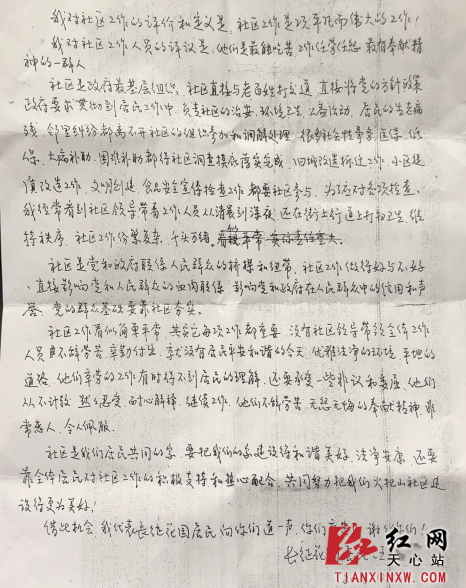 我对社区工作的评价和定义是，社区工作是项平凡而伟大的工作！
我对社区工作人员的评议是，他们是最能吃苦工作任劳任怨 最有奉献精
神的一群人
社区是政府最基层组织，社区直接与老百姓打交道，直接将党的方针政策
政府要求贯彻到居民工作中，负责社区的治安、环境卫生、公益活动、居民的生老病
残，邻里纠纷都离不开社区的组织参加和调解处理，很多社会性事务医保、低
保、大病补助、困难补助都得社区调查摸底落实完成，旧城改造拆迁工作，小区提
质改造工作，文明创建 食品安全宣传检查工作 都要社区参与，为了应对各项检查，
我经常看到社区领导带着工作人员从清晨到深夜 还在街上行道上打扫卫生，维
持秩序，社区工作纷繁复杂，千头万绪，
社区是党和政府联系人民群众的桥梁和纽带，社区工作做得好与不好
，直接影响党和人民群众的血肉联系，影响党和政府在人民群众中的信用和声
誉，党的群众基础要靠社区夯实。
社区工作看似简单平常，其实它每项工作都重要，没有社区领导带领全体工作
人员的不辞劳苦、辛勤付出，就没有居民平安和谐的今天，优雅洁净的环境，平坦的
道路，他们辛劳的工作有时得不到居民的理解，还要承受一些非议和委屈，他们
从不计较，默默忍受，耐心解释，继续工作，他们不辞劳苦、无怨无悔的奉献精神，非
常感人，令人佩服。
社区是我们居民共同的家，要把我们的家建设得和谐美好，洁净安康，还要
靠全体居民对社区工作的积极支持和热心配合，共同努力把我们火把山社区建
设得更为美好！
借此机会，我代表长征花园居民向你们道一声，你们辛苦了，谢谢你们！
长征花
红网
天心站
TIANXINXW.COM